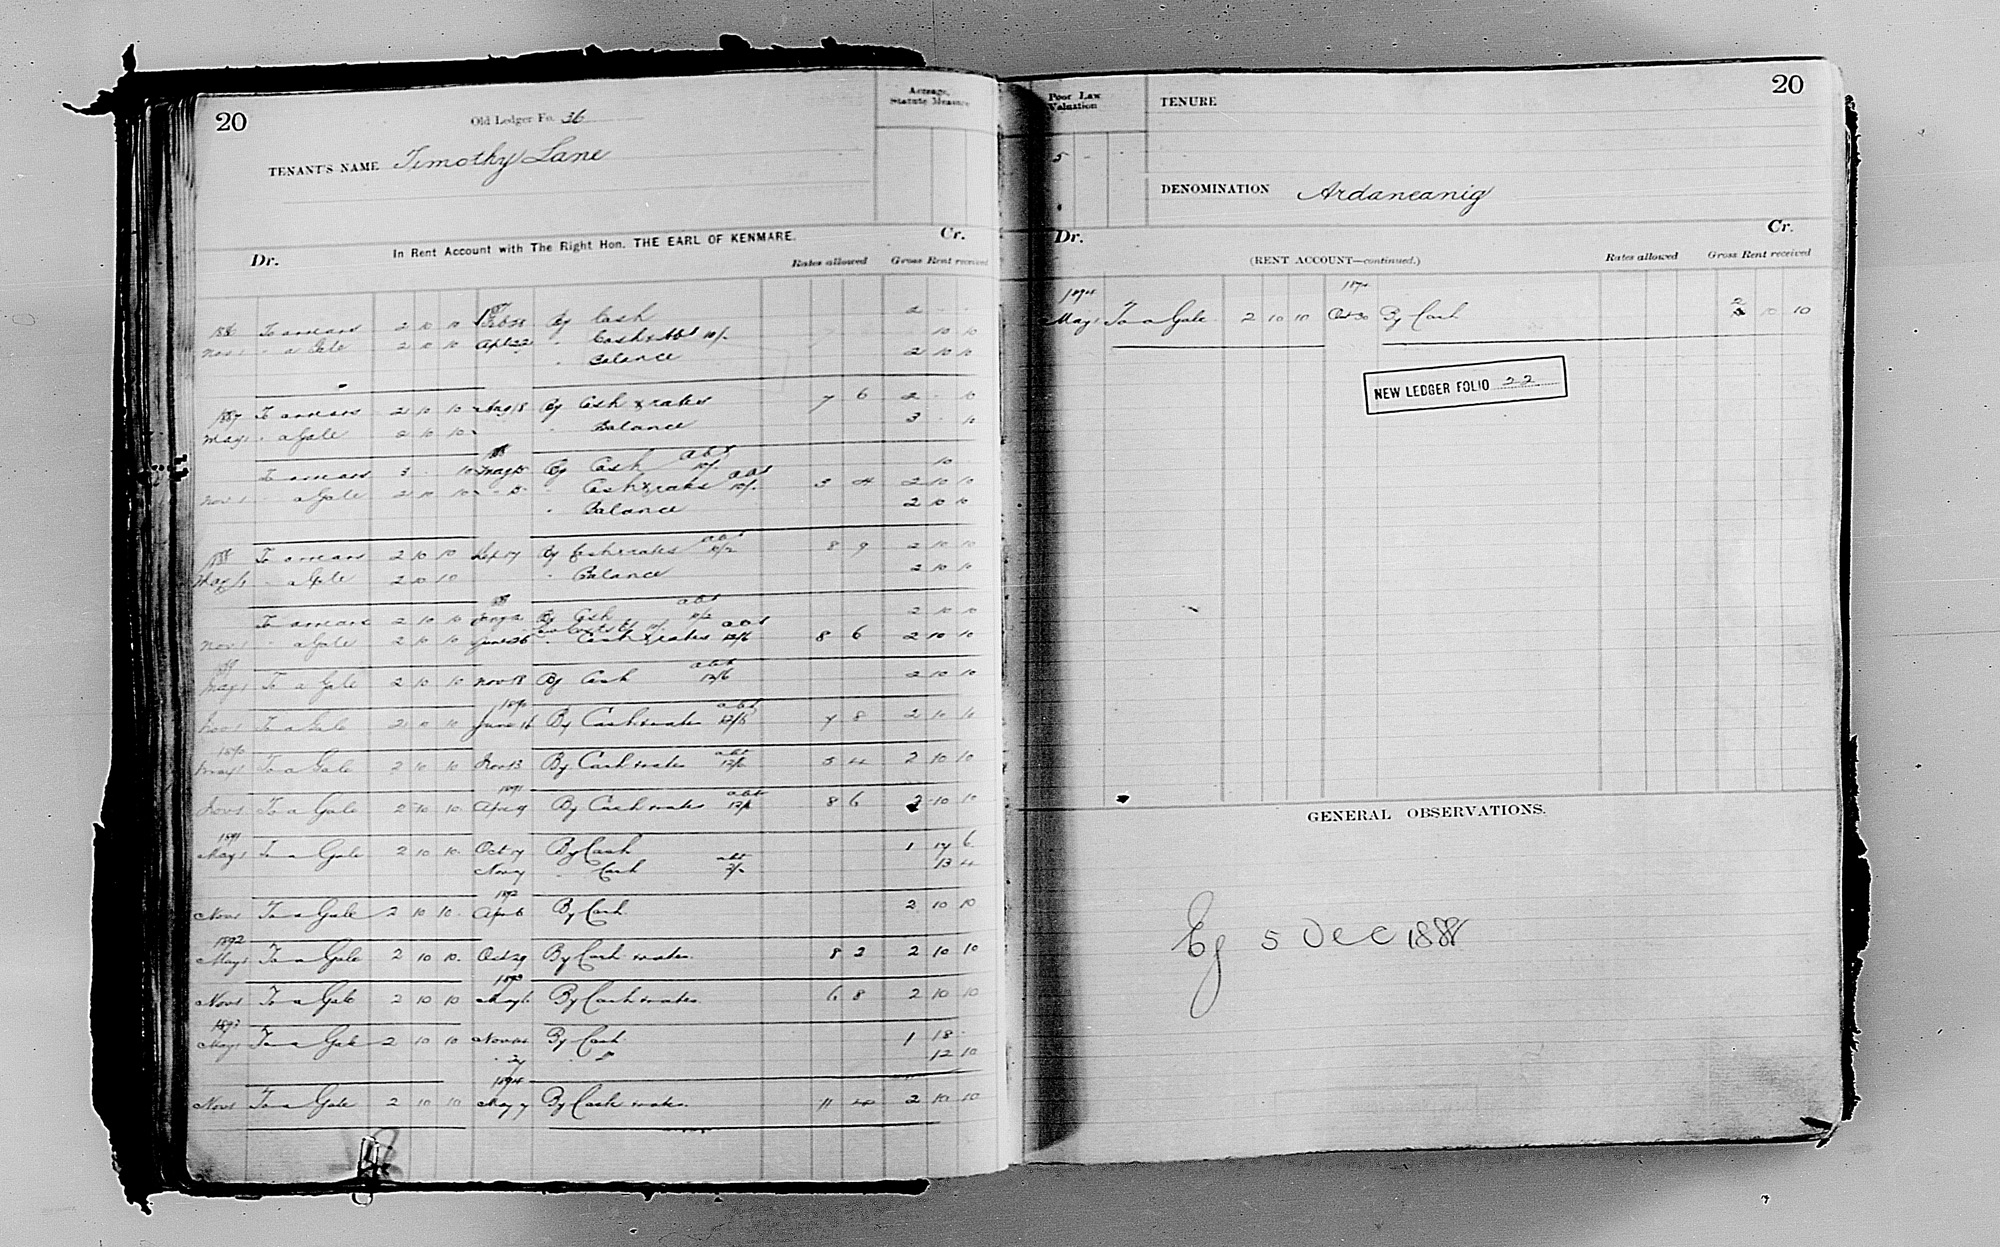 20
Old Ledger Fo. 36
Acreage,
Statute Measure
TENANT'S NAME Timothy Lane
In Rent Account with The Right Hon. THE EARL OF KENMARE.
Dr. Cr.
Rates allowed Gross Rent received
To arrears 2 10 10 By Cash 2 - -
Nov 1 " a Gale 2 10 10 Apl 22 " Cash & Abt 10/- 10 10
" Balance 2 10 10
1887 To arrears 2 10 10 Aug 18 By Cash & rates 7 6 2 - 10
May 1 " a Gale 2 10 10 " Balance 3 - 10
To arrears 3 - 10 May 15 By Cash abt 10/- 10
Nov 1 " a Gale 2 10 10 " D " Cash & rates abt 10/- 3 4 2 10 10
" Balance 2 10 10
1888 To arrears 2 10 10 Sep 17 By Cash & rates abt 10/2 8 9 2 10 10
May 1 " a Gale 2 10 10 " Balance 2 10 10
To arrears 2 10 10 By Cash abt 10/2 2 10 10
Nov 1 " a Gale 2 10 10 June 26 " Cash & rates abt 12/6 8 6 2 10 10
1889
May 1 To a Gale 2 10 10 Nov 18 By Cash abt 12/6 2 10 10
1890
Nov 1 To a Gale 2 10 10 June 16 By Cash & rates abt 12/6 7 8 2 10 10
1890
May 1 To a Gale 2 10 10 Nov 13 By Cash & rates abt 12/6 5 4 2 10 10
1891
Nov 1 To a Gale 2 10 10 Apl 9 By Cash & rates abt 12/6 8 6 2 10 10
1891
May 1 To a Gale 2 10 10 Oct 17 By Cash 1 17 6
Nov 7 " Cash abt 13 4
1892
Nov 1 To a Gale 2 10 10 Apl 6 By Cash 2 10 10
1892
May 1 To a Gale 2 10 10 Oct 29 By Cash & rates 8 2 2 10 10
1893
Nov 1 To a Gale 2 10 10 May 6 By Cash & rates 6 8 2 10 10
1893
May 1 To a Gale 2 10 10 Nov 14 By Cash 1 18 -
" 27 " D 12 10
1894
Nov 1 To a Gale 2 10 10 May 7 By Cash & rates 11 4 2 10 10
20
Poor Law
Valuation
TENURE
5 -
DENOMINATION Ardaneanig
Dr. Cr.
(RENT ACCOUNT—continued.)
Rates allowed Gross Rent received
1894 1894
May 1 To a Gale 2 10 10 Oct 30 By Cash 2 10 10
NEW LEDGER FOLIO 22
GENERAL OBSERVATIONS.
Ej 5 Dec 1888